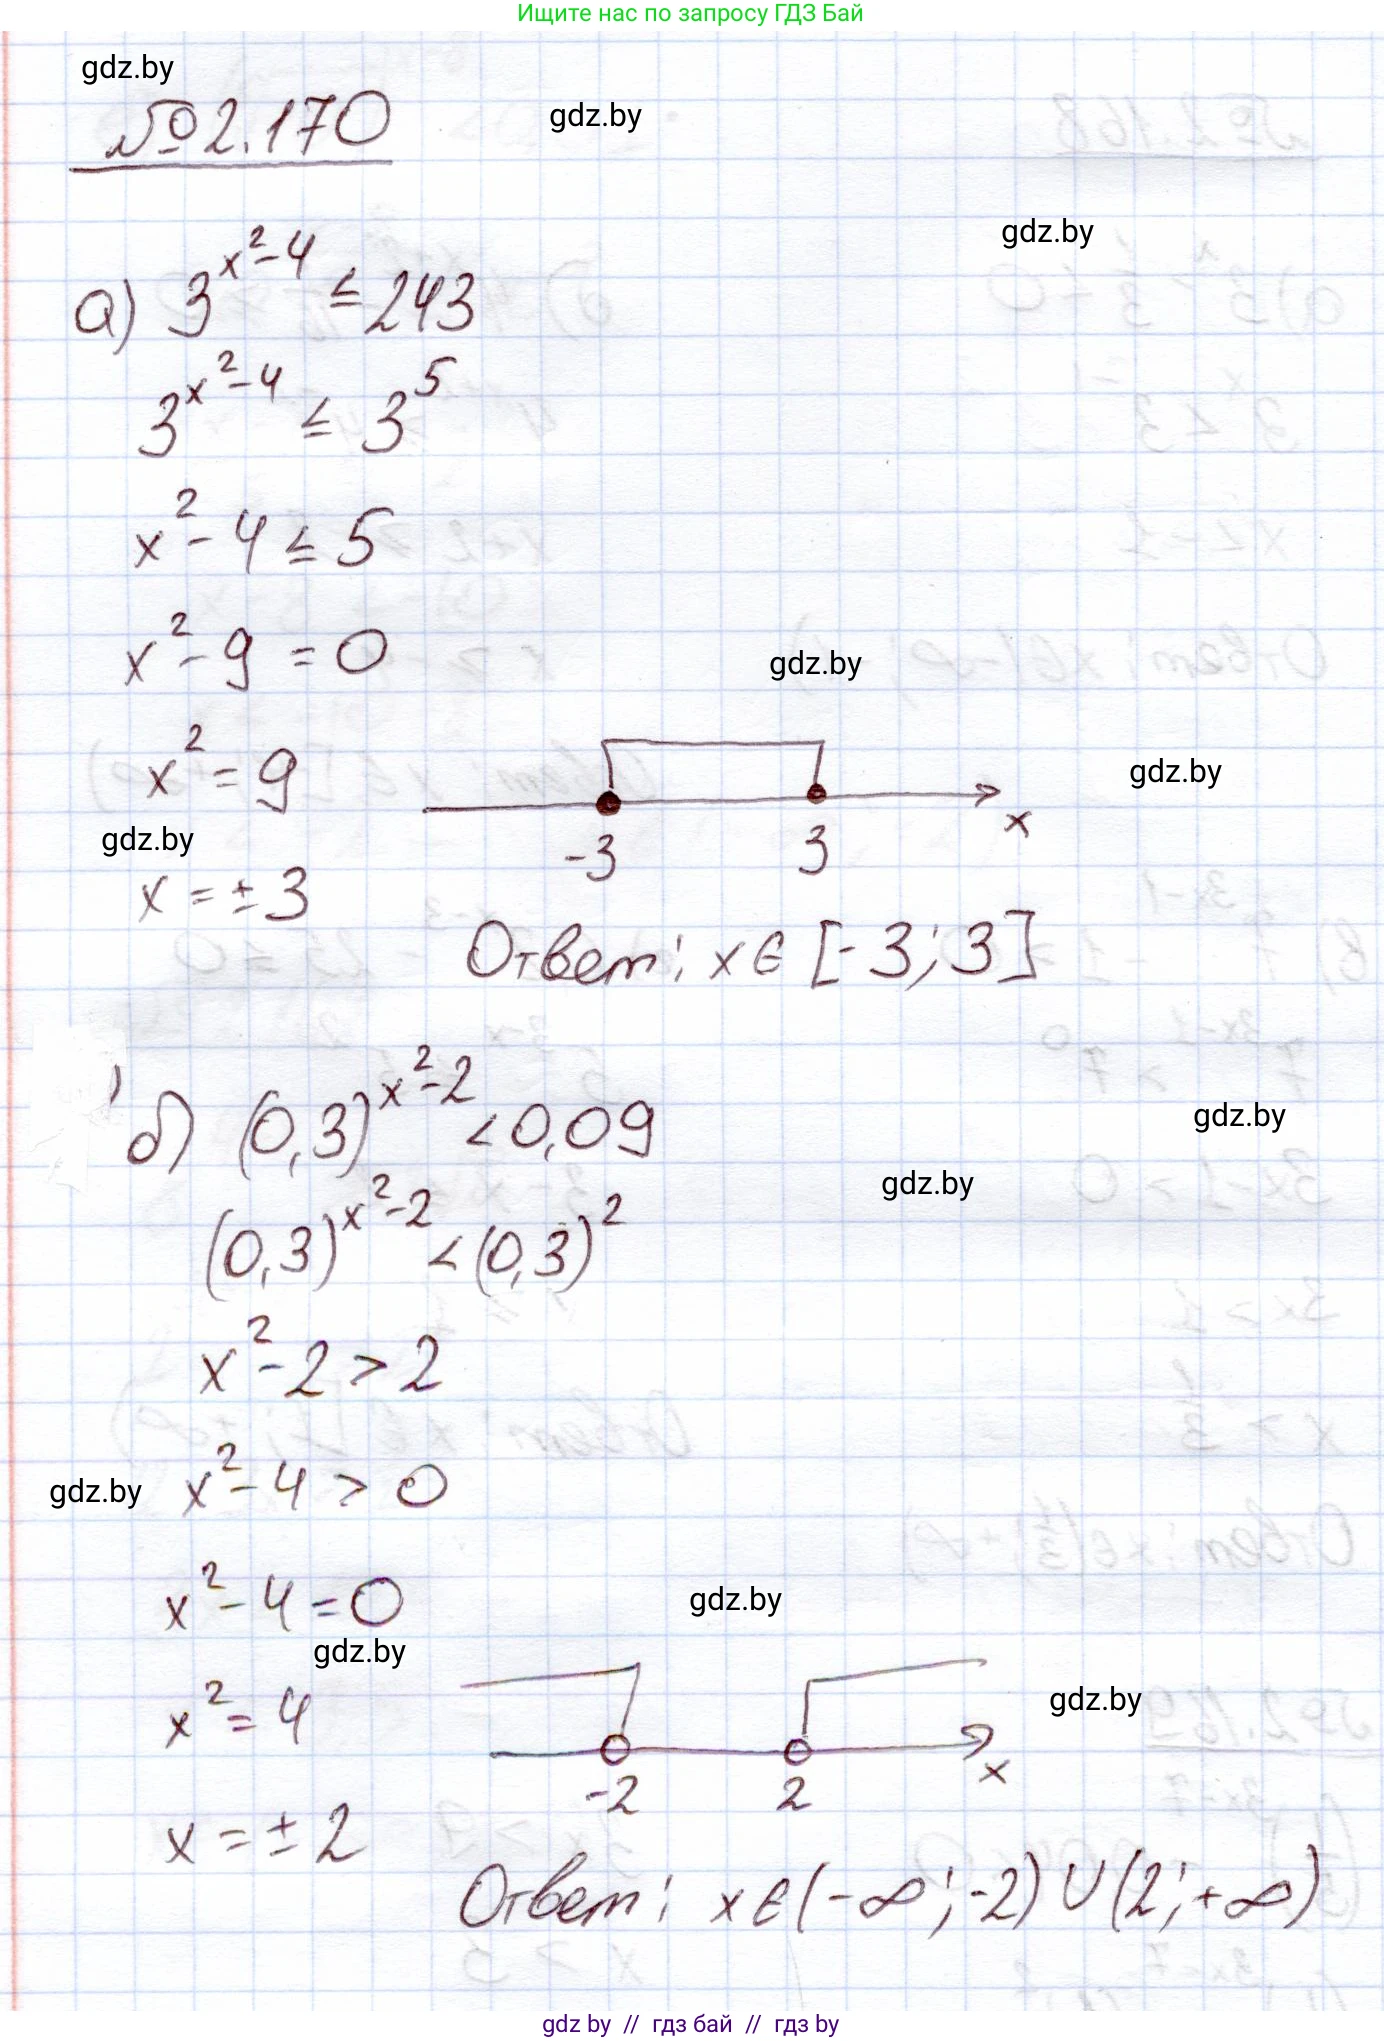 Ищите нас по запросу ГДЗ Бай
gdz.by
№2.170
gdz.by
gdz.by
а) 3^(x²-4) ≤ 243
3^(x²-4) ≤ 3^5
x² - 4 ≤ 5
x² - 9 = 0
gdz.by
x² = 9
gdz.by
gdz.by
-3 3 x
x = ± 3
Ответ: x ∈ [-3; 3]
б) (0,3)^(x²-2) < 0,09
gdz.by
gdz.by
(0,3)^(x²-2) < (0,3)²
x² - 2 > 2
gdz.by
x² - 4 > 0
x² - 4 = 0
gdz.by
gdz.by
x² = 4
gdz.by
-2 2 x
x = ± 2
Ответ: x ∈ (-∞; -2) ∪ (2; +∞)
gdz by // гдз бай // гдз by